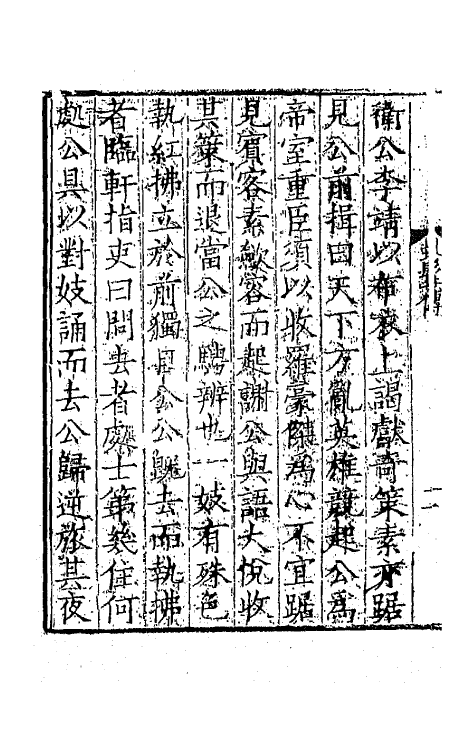 衛公李靖以布衣上謁獻奇策素亦踞
見公前揖曰天下方亂英雄競起公爲
帝室重臣須以收羅豪傑爲心不宜踞
見賓客素歛容而起謝公與語大悅收
其策而退當公之騁辨也一妓有殊色
執紅拂立於前獨目公公旣去而執拂
者臨軒指吏曰問去者處士第幾住何
處公具以對妓誦而去公歸逆旅其夜